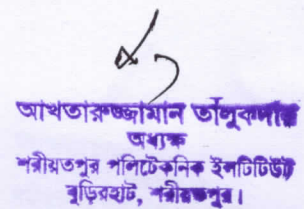 আখতারুজ্জামান তালুকদার
অধ্যক্ষ
শরীয়তপুর পলিটেকনিক ইনষ্টিটিউট
বুড়িরহাট, শরীয়তপুর।